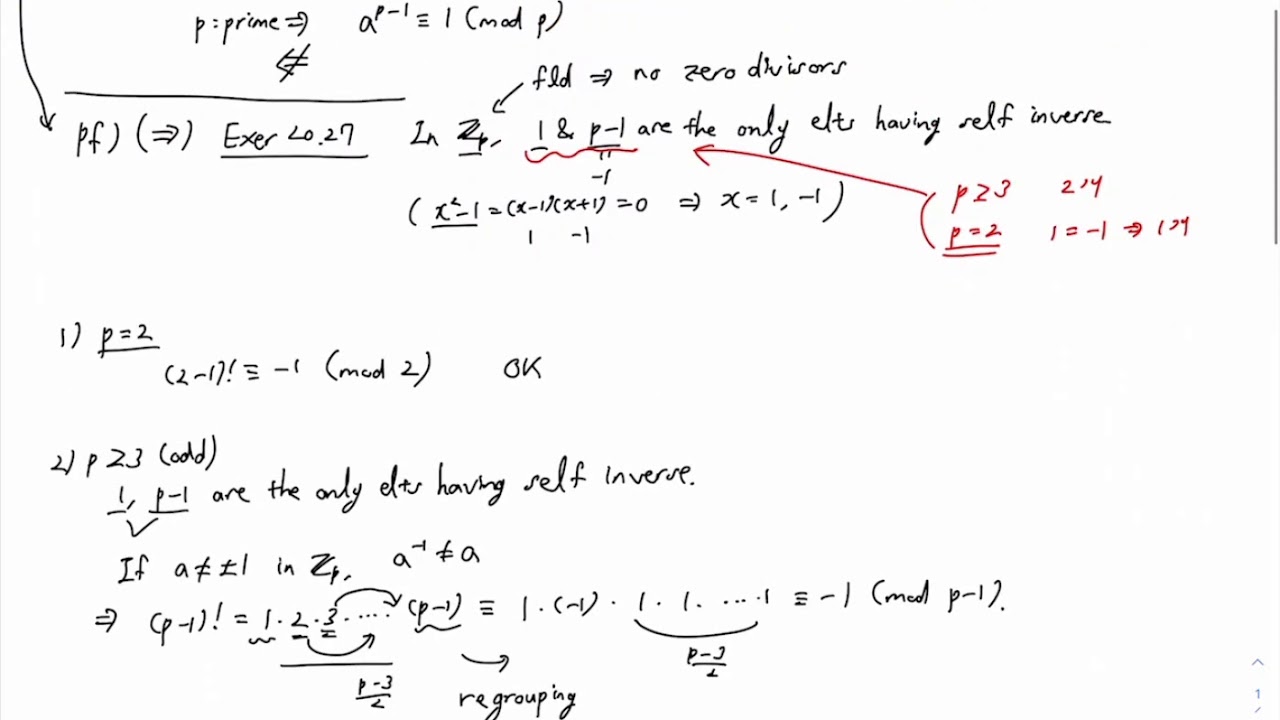 p : prime ⇒ a^{p-1} ≡ 1 (mod p)
⇍
fld ⇒ no zero divisors
pf) (⇒) Exer 20.27 In ℤp, 1 & p-1 are the only elts having self inverse
"
-1
(x²-1 = (x-1)(x+1) = 0 ⇒ x = 1, -1)
1 -1
p≥3 2개
p=2 1=-1 ⇒ 1개
1) p=2
(2-1)! ≡ -1 (mod 2) OK
2) p≥3 (odd)
1, p-1 are the only elts having self inverse.
If a≠±1 in ℤp, a⁻¹≠a
⇒ (p-1)! = 1·2·3····· (p-1) ≡ 1·(-1)· 1·1·…·1 ≡ -1 (mod p-1).
p-3/2
p-3/2
regrouping
1